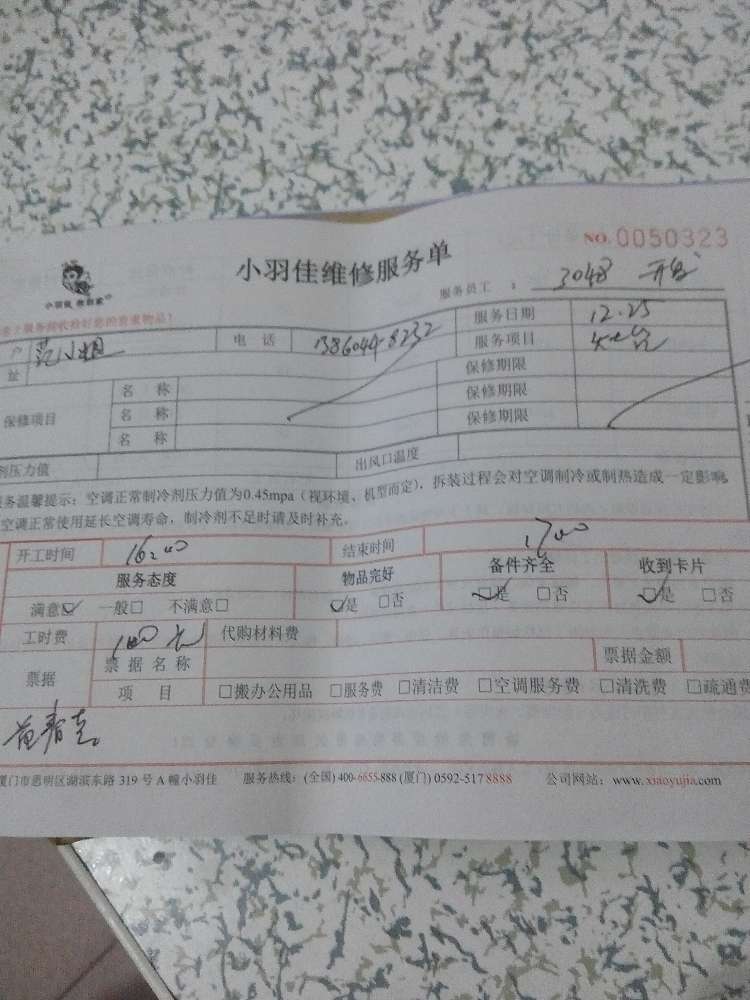 NO. 0050323
小羽佳维修服务单
小羽佳 您的家
服务员工 : 3048
户 范小姐 电 话 13860448232 服务日期 12.25
址 服务项目
保修项目 名 称 保修期限
名 称 保修期限
名 称 保修期限
剂压力值 出风口温度
服务温馨提示：空调正常制冷剂压力值为0.45mpa（视环境、机型而定），拆装过程会对空调制冷或制热造成一定影响
空调正常使用延长空调寿命，制冷剂不足时请及时补充。
开工时间 16:00 结束时间 17:00
服务态度 物品完好 备件齐全 收到卡片
满意☑ 一般□ 不满意□ ☑是 □否 ☑是 □否 ☑是 □否
工时费 100元 代购材料费
票据 票 据 名 称 票据金额
项 目 □搬办公用品 □服务费 □清洁费 □空调服务费 □清洗费 □疏通费
厦门市思明区湖滨东路 319 号 A 幢小羽佳 服务热线：(全国) 400-6655-888 (厦门) 0592-517 8888 公司网站：www.xiaoyujia.com